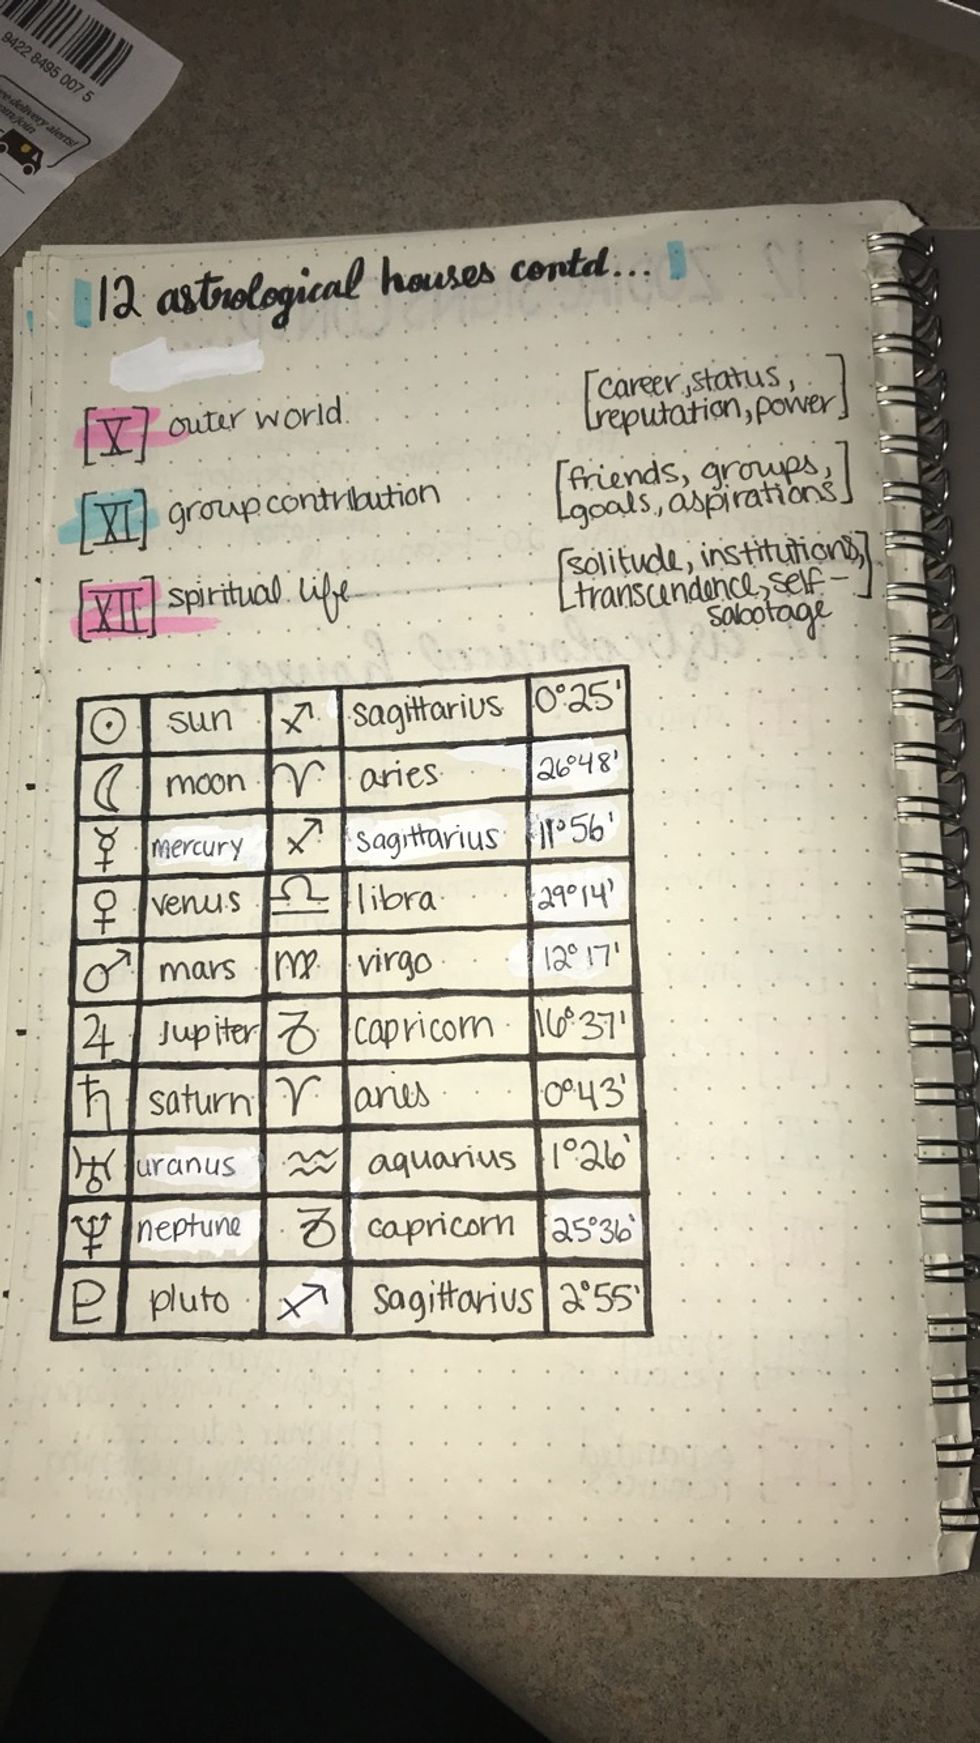 9422 8495 007 5
delivery alerts!
12 astrological houses contd...
[X] outer world. [career, status, reputation, power]
[XI] group contribution [friends, groups, goals, aspirations]
[XII] spiritual life [solitude, institutions, transcendence, self-sabotage]
☉ sun ♐ sagittarius 0°25'
☾ moon ♈ aries 26°48'
☿ mercury ♐ sagittarius 11°56'
♀ venus ♎ libra 29°14'
♂ mars ♍ virgo 12°17'
♃ Jupiter ♑ capricorn 16°37'
♄ saturn ♈ aries 0°43'
♅ uranus ♒ aquarius 1°26'
♆ neptune ♑ capricorn 25°36'
♇ pluto ♐ sagittarius 2°55'